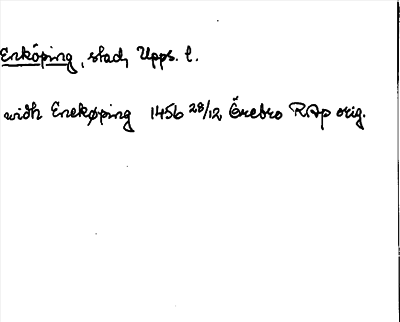 Enköping, stad, Upps. l.
widh Enekøping 1456 28/12 Örebro RAp orig.